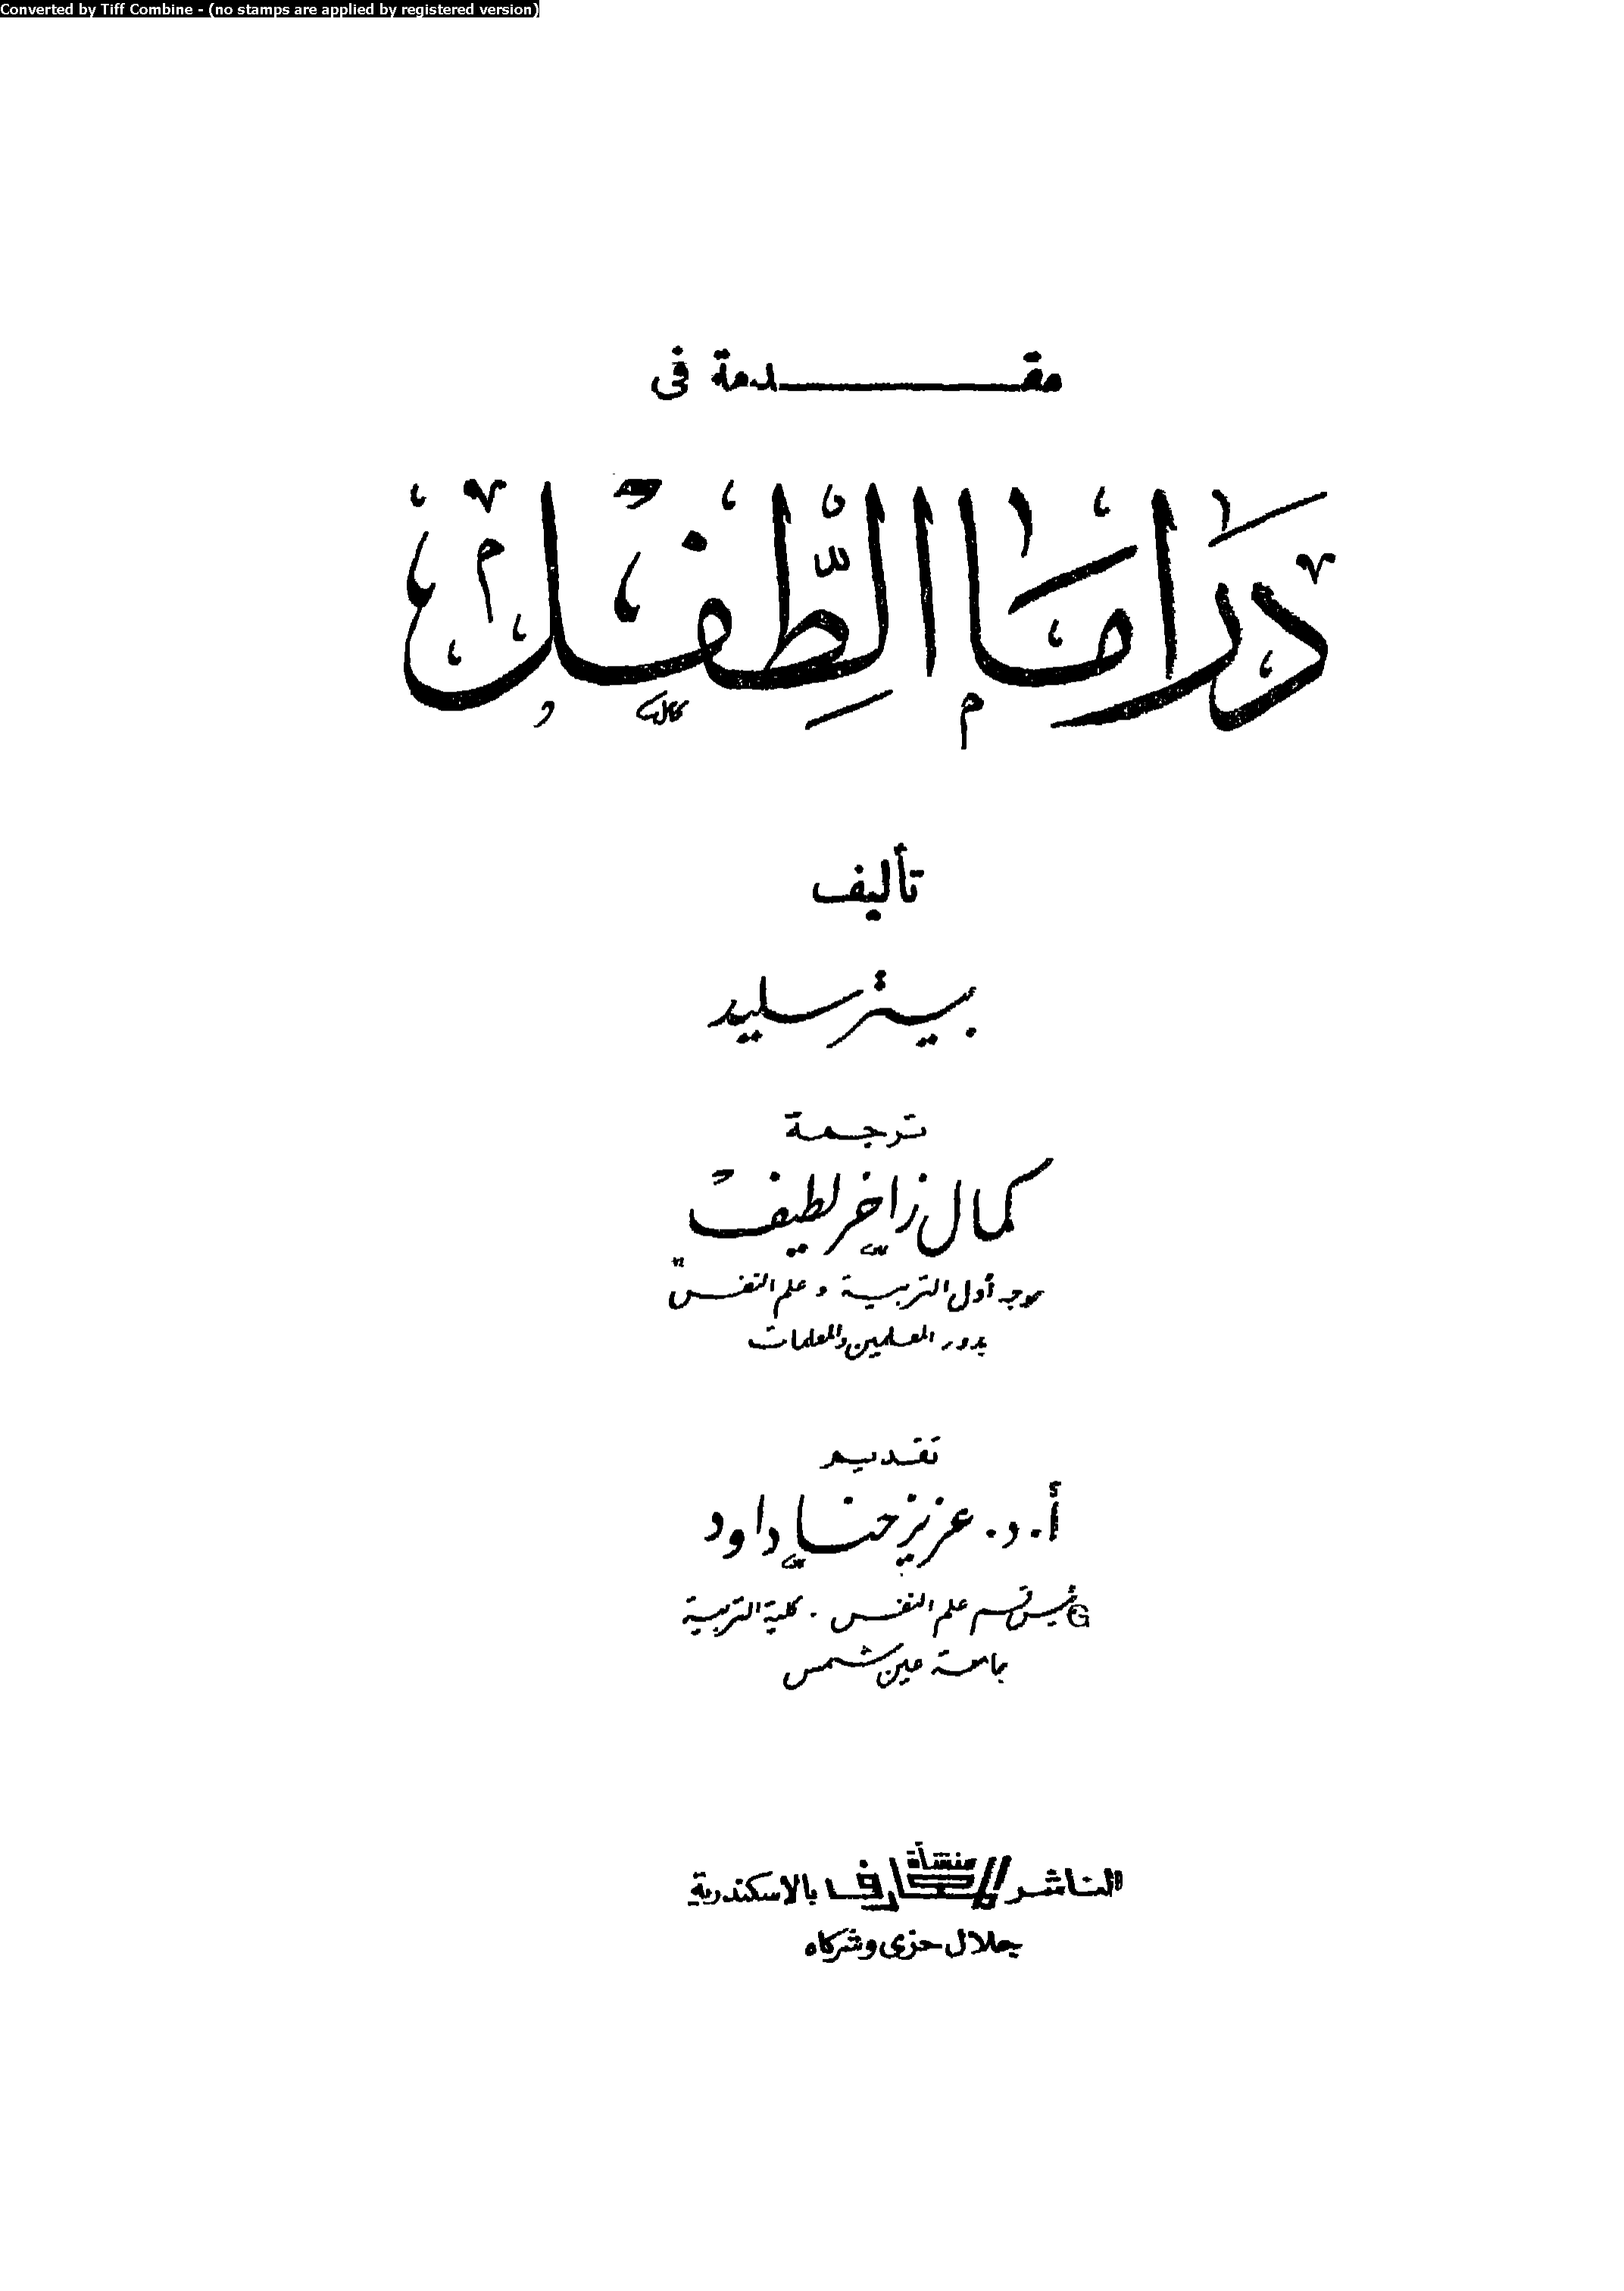 Converted by Tiff Combine - (no stamps are applied by registered version)
مقدمة فى
دراما الطفل
تأليف
بيتر سليد
ترجمة
كمال زاخر لطيف
موجه أول التربية وعلم النفس
بدور المعلمين والمعلمات
تقديم
أ.د. عزيز حنا داود
رئيس قسم علم النفس . كلية التربية
جامعة عين شمس
الناشر منشأة المعارف بالاسكندرية
جلال حزى وشركاه